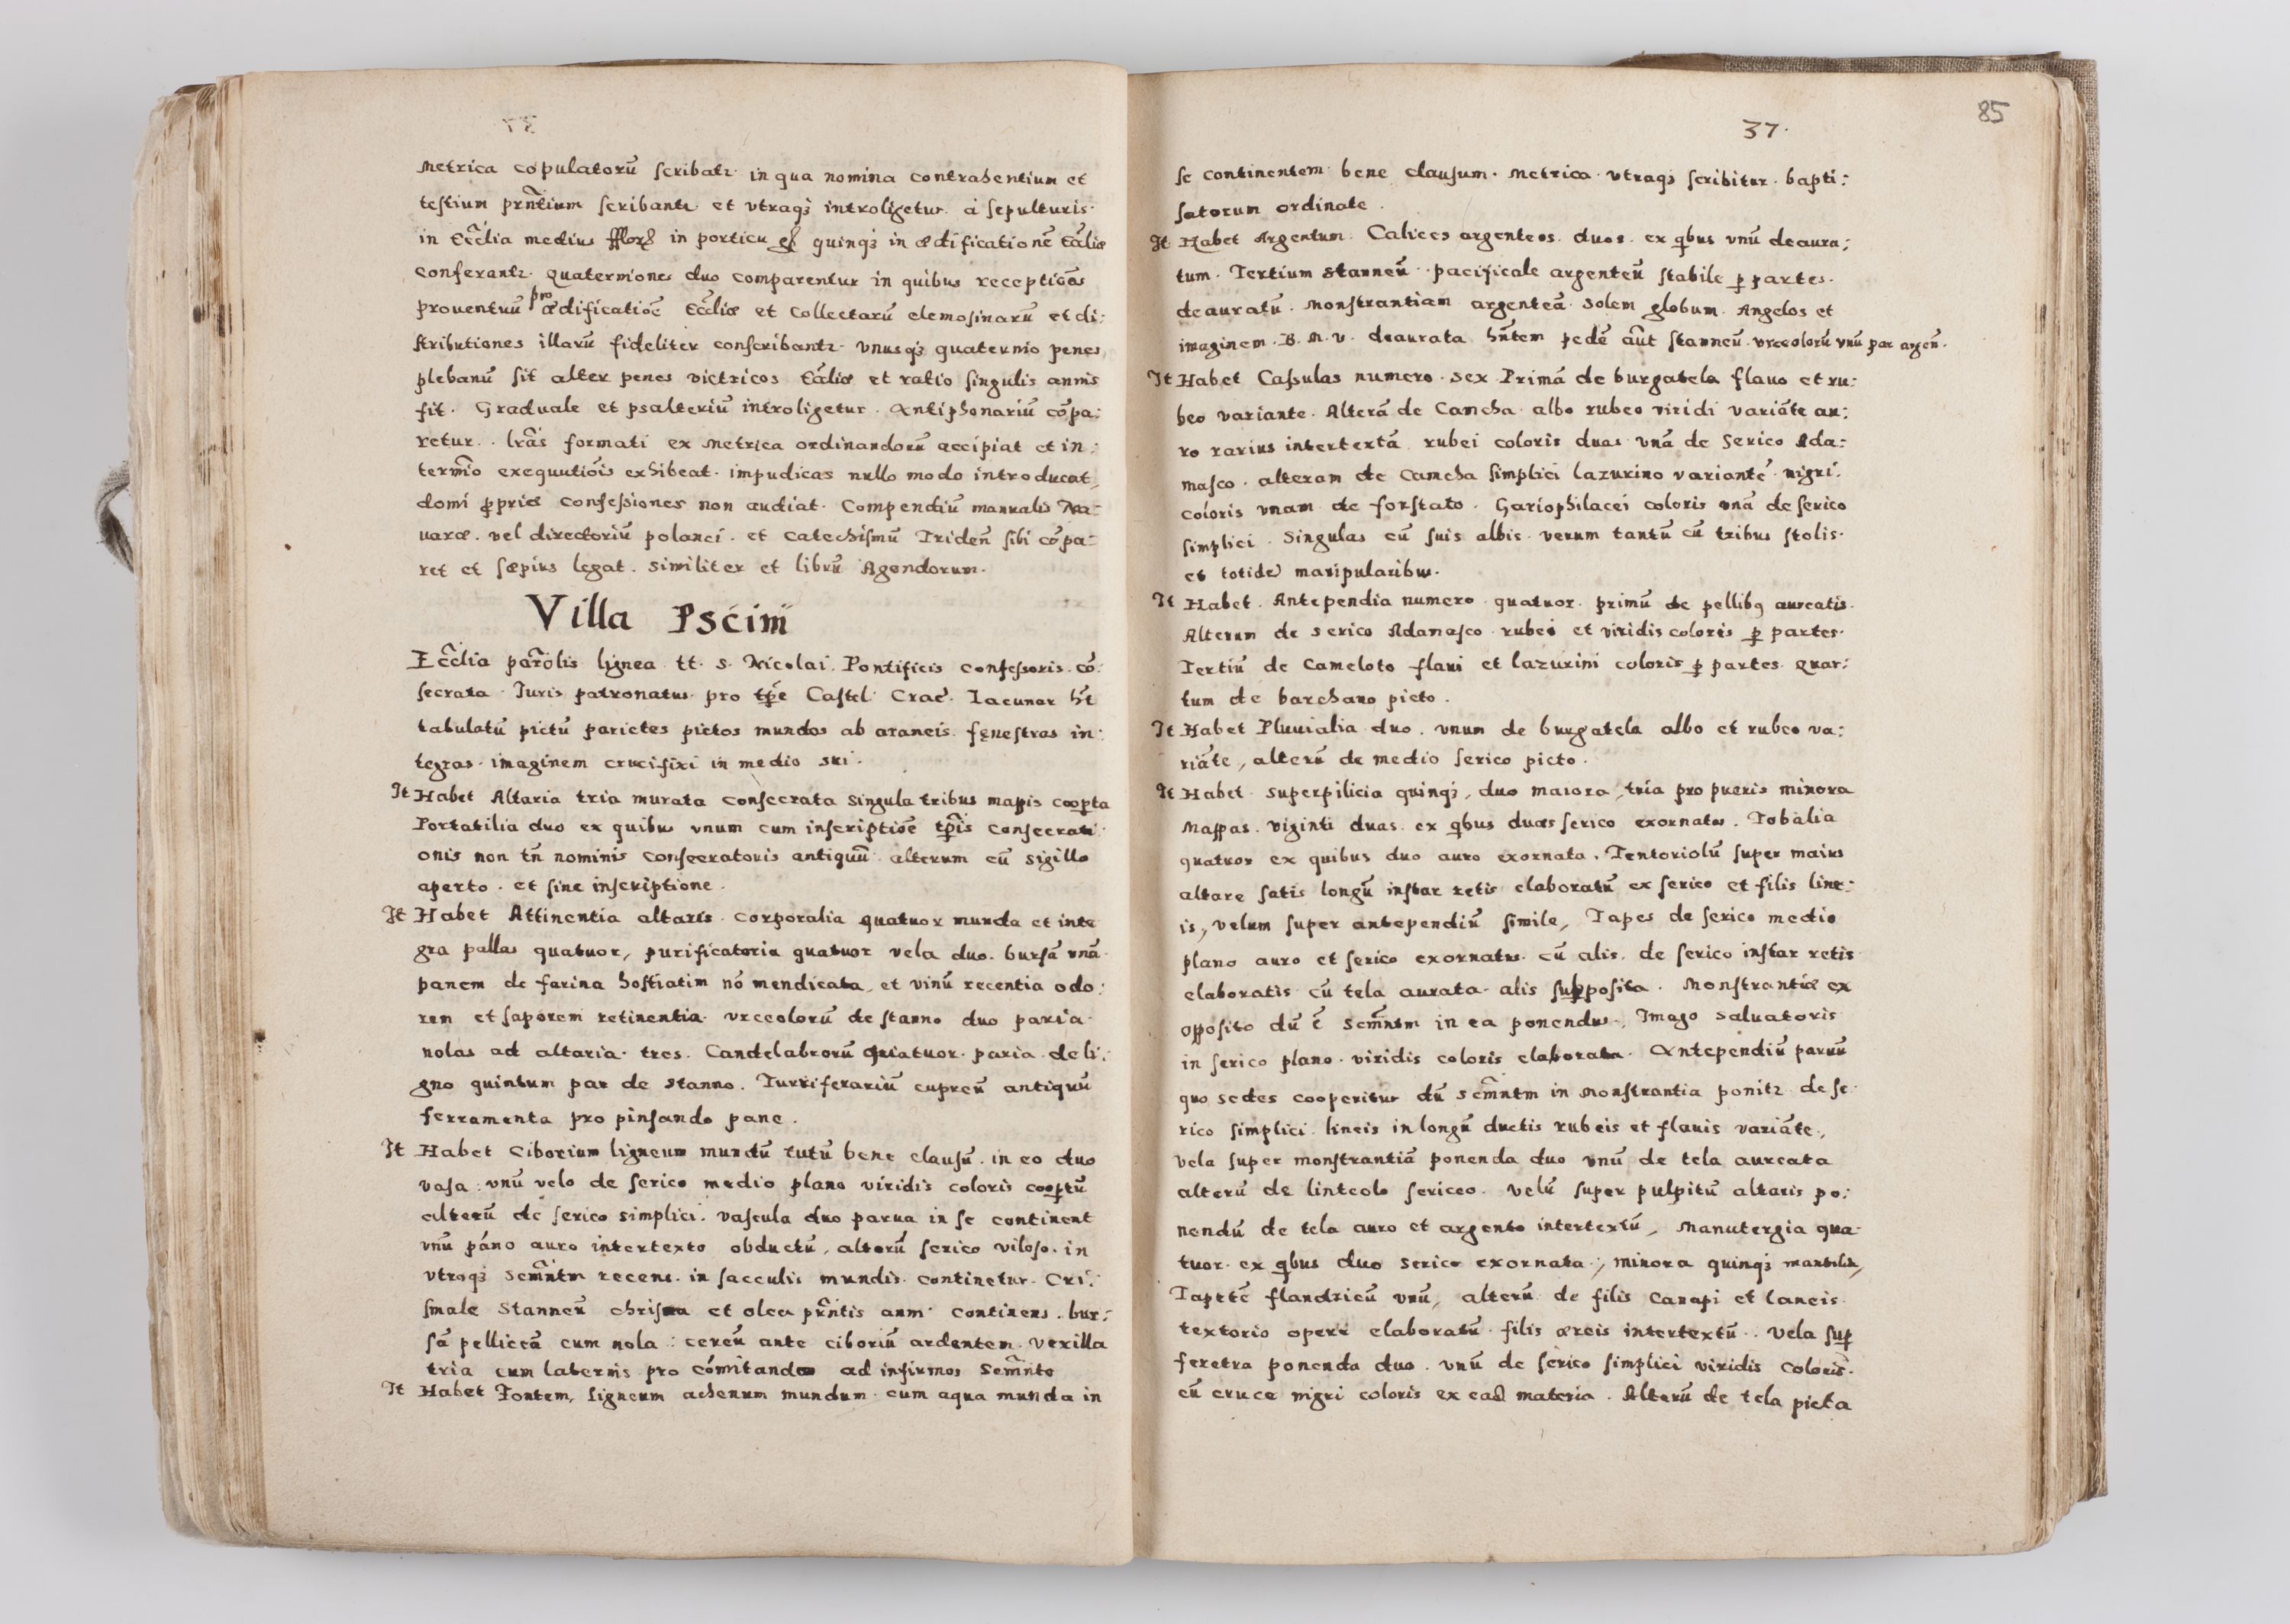 metrica copulatorū scribatr in qua nomina contrahentium et
testium prñtium scribantr et vtraqȝ introligetur. à sepulturis
in Ecc̃lia medius in porticu quinqȝ in ædificationē Ec̃cliæ
conferantr. quaterniones duo comparentur in quibus receptiōes
prouentuū pro ædificatiōe Ecc̃liæ et collectarū elemosinarū et di:
stributiones illarū fideliter conscribantr. vnusqȝ quaternio penes
plebanū sit alter penes victricos Ec̃cliæ et ratio singulis annis
fit. Graduale et psalteriū introligetur. Antiphonariū cōpa:
retur. lrãs formati ex metrica ordinandorū accipiat et in:
termĩo exequutiōis exhibeat. impudicas nullo modo introducat,
domi ꝓpriæ confessiones non audiat. Compendiū manualis Na:
uaræ. vel directoriū polanci. et catechismū Tridēn sibi cōpa:
ret et sæpius legat. similiter et librū Agendorum.
Villa Pscim
Ecc̃lia parõlis lignea tt. s. Nicolai Pontificis confessoris cō:
secrata. Iuris patronatus pro tp̃e Castel. Crac̃. Lacunar hēt
tabulatū pictū parietes pictos mundos ab araneis. fenestras in:
tegras. imaginem crucifixi in medio sui.
It Habet Altaria tria murata consecrata singula tribus mappis cooꝑta
Portatilia duo ex quibus vnum cum inscriptiōe tp̃is consecrati:
onis non tñ nominis consecratoris antiquū alterum cū sigillo
aperto. et sine inscriptione.
It Habet Attinentia altaris. corporalia quatuor munda et inte
gra pallas quatuor, purificatoria quatuor vela duo. bursā vnā.
panem de farina hostiatim nō mendicata, et vinū recentia odo:
rem et saporem retinentia. vrceolorū de stanno duo paria.
nolas ad altaria. tres. Candelabrorū quatuor. paria. de li:
gno quintum par de stanno. Turriferariū cupreū antiquū
ferramenta pro pinsando pane.
It Habet Ciborium ligneum mundū tutū bene clausū. in eo duo
vasa: vnū velo de serico medio plano viridis coloris cooꝑtū
alterū de serico simplici. vascula duo parua in se continent
vnū páno auro intertexto obductū, alterū serico viloso. in
vtroqȝ Scm̃ntm recens. in sacculis mundis. continetur. Cri:
smale stanneū chrisma et olea prñtis anni continens. bur:
sā pelliceā cum nola: cereū ante ciboriū ardentem. vexilla
tria cum laternis pro cōmitando ad infirmos Scm̃nto
It Habet Fontem, ligneum achenum mundum. cum aqua munda in
37.
85
se continentem bene clausum. metrica. vtraqȝ scribitur. bapti:
satorum ordinate.
It Habet Argentum. Calices argenteos. duos. ex qbus vnū deaura:
tum. Tertium stanneū. pacificale argenteū stabile ꝑ partes.
deauratū. Monstrantiam argenteā. solem globum. Angelos et
imaginem. B. M. v. deaurata hñtem pedē aũt stanneū. vrceolorū vnū par argen̄.
It Habet Cassulas numero. sex Primā de burgatela flauo et ru:
beo variante. Alterā de Camcha. albo rubeo viridi variāte au:
ro rarius intertextā rubei coloris duas vnā de Serico Ada:
masco. alteram de Camcha simplici lazurino variante. nigri.
coloris vnam de forstato. Gariophilacei coloris vnā de serico
simplici. Singulas cū suis albis. verum tantū cū tribus stolis.
et totidē manipularibus.
It Habet. Antependia numero quatuor. primū de pellibꝫ aureatis.
Alterum de serico Adamasco. rubei et viridis coloris ꝑ partes.
Tertiū de Cameloto flaui et lazurini coloris ꝑ partes. Quar:
tum de barchano picto.
It Habet Pluuialia duo. vnum de burgatela albo et rubeo va:
riāte, alterū de medio serico picto.
It Habet. Superpilicia quinqȝ, duo maiora, tria pro pueris minora
Mappas. viginti duas. ex qbus duas serico exornatas. Tobalia
quatuor ex quibus duo auro exornata. Tentoriolū super maius
altare satis longū instar retis elaboratū ex serico et filis line:
is, velum super antependiū simile, Tapes de serico medio
plano auro et serico exornatus. cū alis. de serico instar retis
elaboratis cū tela aurata alis supposita. Monstrantiæ ex
opposito dū ē Scm̃ntm in ea ponendus., Imago Saluatoris
in serico plano. viridis coloris elaborata. Antependiū paruū
quo sedes cooperitur dū scm̃ntm in Monstrantia ponitr de se.
rico simplici. lineis in longū ductis rubeis et flauis variāte.,
vela super monstrantiā ponenda duo vnū de tela aureata
alterū de linteolo sericeo. velū super pulpitū altaris po:
nendū de tela auro et argento intertextū, Manutergia qua:
tuor. ex qbus duo serico exornata., minora quinqȝ mantilia,
Tapetē flandricū vnū, alterū de filis canapi et laneis.
textorio opere elaboratū. filis æreis intertextū. Vela suꝑ
feretra ponenda duo. vnū de serico simplici viridis coloris.
cū cruce nigri coloris ex eād materia. Alterū de tela picta